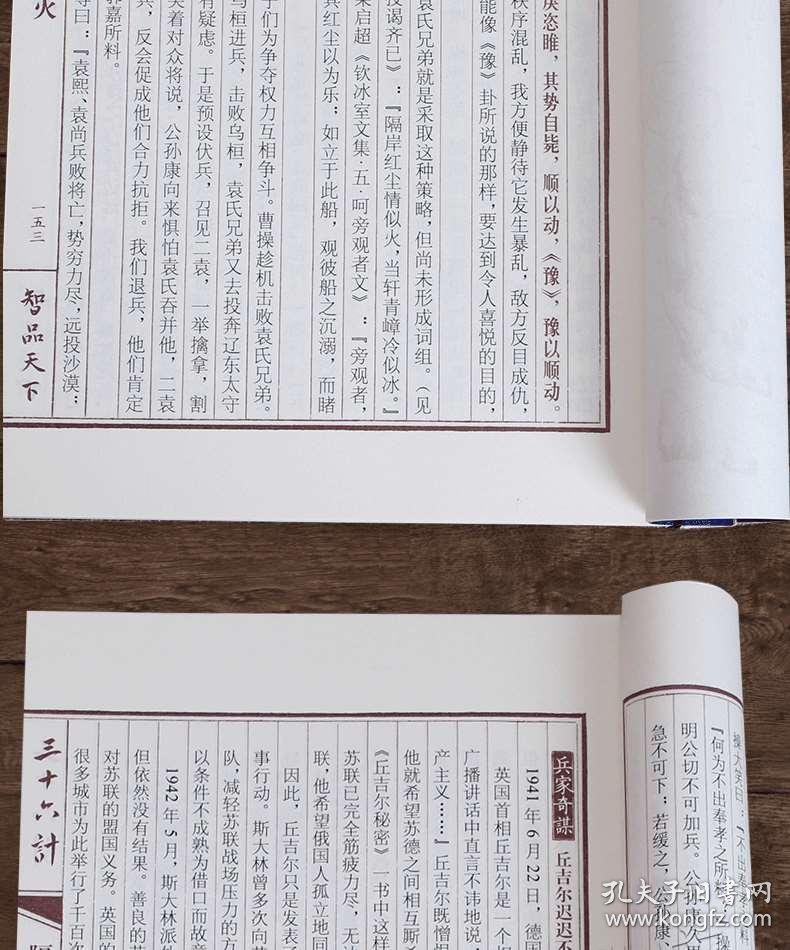 戾恣睢，其势自毙，顺以动，《豫》，豫以顺动。
秩序混乱，我方便静待它发生暴乱，敌方反目成仇，
能像《豫》卦所说的那样，要达到令人喜悦的目的，
袁氏兄弟就是采取这种策略，但尚未形成词组。（见
投谒齐已》：『隔岸红尘情似火，当轩青嶂冷似冰。』
启超《钦冰室文集·五·呵旁观者文》：『旁观者，
其红尘以为乐；如立于此船，观彼船之沉溺，而睹
子们为争夺权力互相争斗。曹操趁机击败袁氏兄弟。
乌桓进兵，击败乌桓，袁氏兄弟又去投奔辽东太守
有疑虑。于是预设伏兵，召见二袁，一举擒拿，割
笑着对众将说，公孙康向来惧怕袁氏吞并他，二袁
兵，反会促成他们合力抗拒。我们退兵，他们肯定
郭嘉所料。
曰：『袁熙、袁尚兵败将亡，势穷力尽，远投沙漠；
火
一五三
智品天下
操大笑曰：『不出奉
『何为不出奉孝之所
明公切不可加兵。公孙康久
急不可下；若缓之，公孙康
兵家奇謀
丘吉尔迟迟不
1941年6月22日，德国
英国首相丘吉尔是一个
广播讲话中直言不讳地说：
产主义……』丘吉尔既憎
他就希望苏德之间相互厮
《丘吉尔秘密》一书中这样
苏联已完全筋疲力尽，无
联，他希望俄国人孤立地
因此，丘吉尔只是发表
事行动。斯大林曾多次向
队，减轻苏联战场压力的方
以条件不成熟为借口而故意
1942年5月，斯大林派
但依然没有结果。善良的
对苏联的盟国义务。英国的
很多城市为此举行了千百次
三十六計
隔
孔夫子旧书网